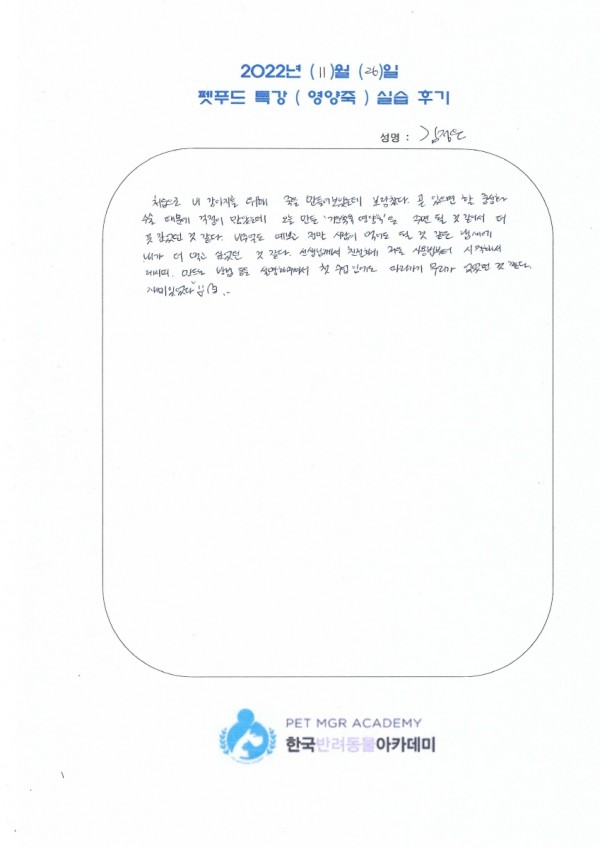 2022년 (11)월 (26)일
펫푸드 특강 ( 영양죽 ) 실습 후기
성명 :
처음으로 내 강아지를 위해 죽을 만들어보았는데 보람찼다. 곧 있으면 할 중성화
수술 때문에 걱정이 많았는데 오늘 만든 '기력회복 영양죽'을 주면 될 것 같아서 더
뜻 깊었던 것 같다. 비주얼도 예쁘고 정말 사람이 먹어도 될 것 같은 냄새에
내가 더 먹고 싶었던 것 같다. 선생님께서 친절하게 저울 사용법부터 시작해서
레시피, 만드는 방법 등을 설명해주셔서 첫 수업 임에도 따라가기 무리가 없었던 것 같다.
재미있었다
PET MGR ACADEMY
한국반려동물아카데미